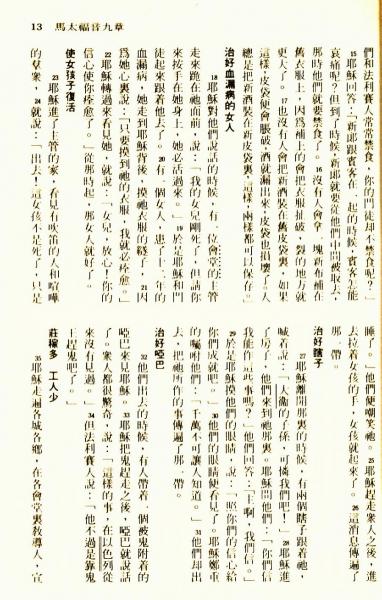 馬太福音九章
13
們和法利賽人常常禁食，你的門徒却不禁食呢？」
15 耶穌回答：「新郎跟賓客在一起的時候，賓客怎能
哀痛呢？但到了時候新郎就要從他們中間被取去，
那時他們就要禁食了。16 沒有人會拿一塊新布補在
舊衣服上，因爲補上的會把衣服扯破，裂的地方就
更大了。17 也沒有人會把新酒裝在舊皮袋裏，如果
這樣，皮袋便會脹破，酒就漏出來，皮袋也損壞了。人
總是把新酒裝在新皮袋裏，這樣，兩樣都可以保存。」
治好血漏病的女人
18 耶穌對他們說話的時候，有一位會堂的主管
走來跪在祂面前，說：「我的女兒剛死了，但請你
來按手在她身上，她必活過來。」19 於是耶穌和門
徒起來跟着他去了。20 有一個女人，患了十二年的
血漏病，她走到耶穌背後，摸祂衣服的繸子，21 因
爲她心裏說：「只要摸到祂的衣服，我就必痊愈。」
22 耶穌轉過來看見她，就說：「女兒，放心！你的
信心使你痊愈了。」從那時起，那女人就好了。
使女孩子復活
23 耶穌進了主管的家，看見有吹笛的人和喧嘩
的羣衆，24 就說：「出去！這女孩不是死了，只是
睡了。」他們便嘲笑祂。25 耶穌趕走衆人之後，進
去拉着女孩的手，女孩就起來了。26 這消息傳遍了
那一帶。
治好瞎子
27 耶穌離開那裏的時候，有兩個瞎子跟着祂，
喊着說：「大衞的子孫，可憐我們吧！」28 耶穌進
了房子，他們來到祂那裏。耶穌問他們：「你們信
我能作這些事嗎？」他們回答：「主啊，我們信。」
29 於是耶穌摸他們的眼睛，說：「照你們的信心給
你們成就吧。」30 他們的眼睛便看見了。耶穌鄭重
的囑咐他們：「千萬不可讓人知道。」31 他們却出
去，把祂所作的事傳遍了那一帶。
治好啞巴
32 他們出去的時候，有人帶着一個被鬼附着的
啞巴來見耶穌。33 耶穌把鬼趕走之後，啞巴就說話
了。衆人都很驚奇，說：「這樣的事，在以色列從
來沒有見過。」34 但法利賽人說：「他不過是靠鬼
王趕鬼吧了。」
莊稼多　工人少
35 耶穌走遍各城各鄉，在各會堂裏教導人，宣